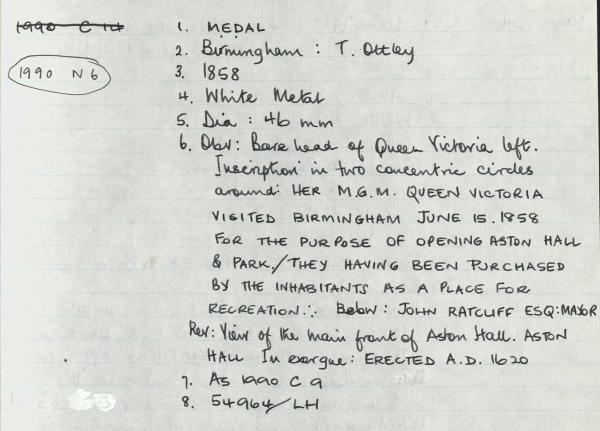 1990 C 14
1990 N 6
1. MEDAL
2. Birmingham : T. Ottley
3. 1858
4. White Metal
5. Dia : 46 mm
6. Obv: Bare head of Queen Victoria left.
Inscription in two concentric circles
around: HER M.G.M. QUEEN VICTORIA
VISITED BIRMINGHAM JUNE 15. 1858
FOR THE PURPOSE OF OPENING ASTON HALL
& PARK./THEY HAVING BEEN PURCHASED
BY THE INHABITANTS AS A PLACE FOR
RECREATION.:. Below: JOHN RATCLIFF ESQ: MAYOR
Rev: View of the main front of Aston Hall. ASTON
HALL In exergue: ERECTED A.D. 1620
7. As 1990 C 9
8. 54964/LH